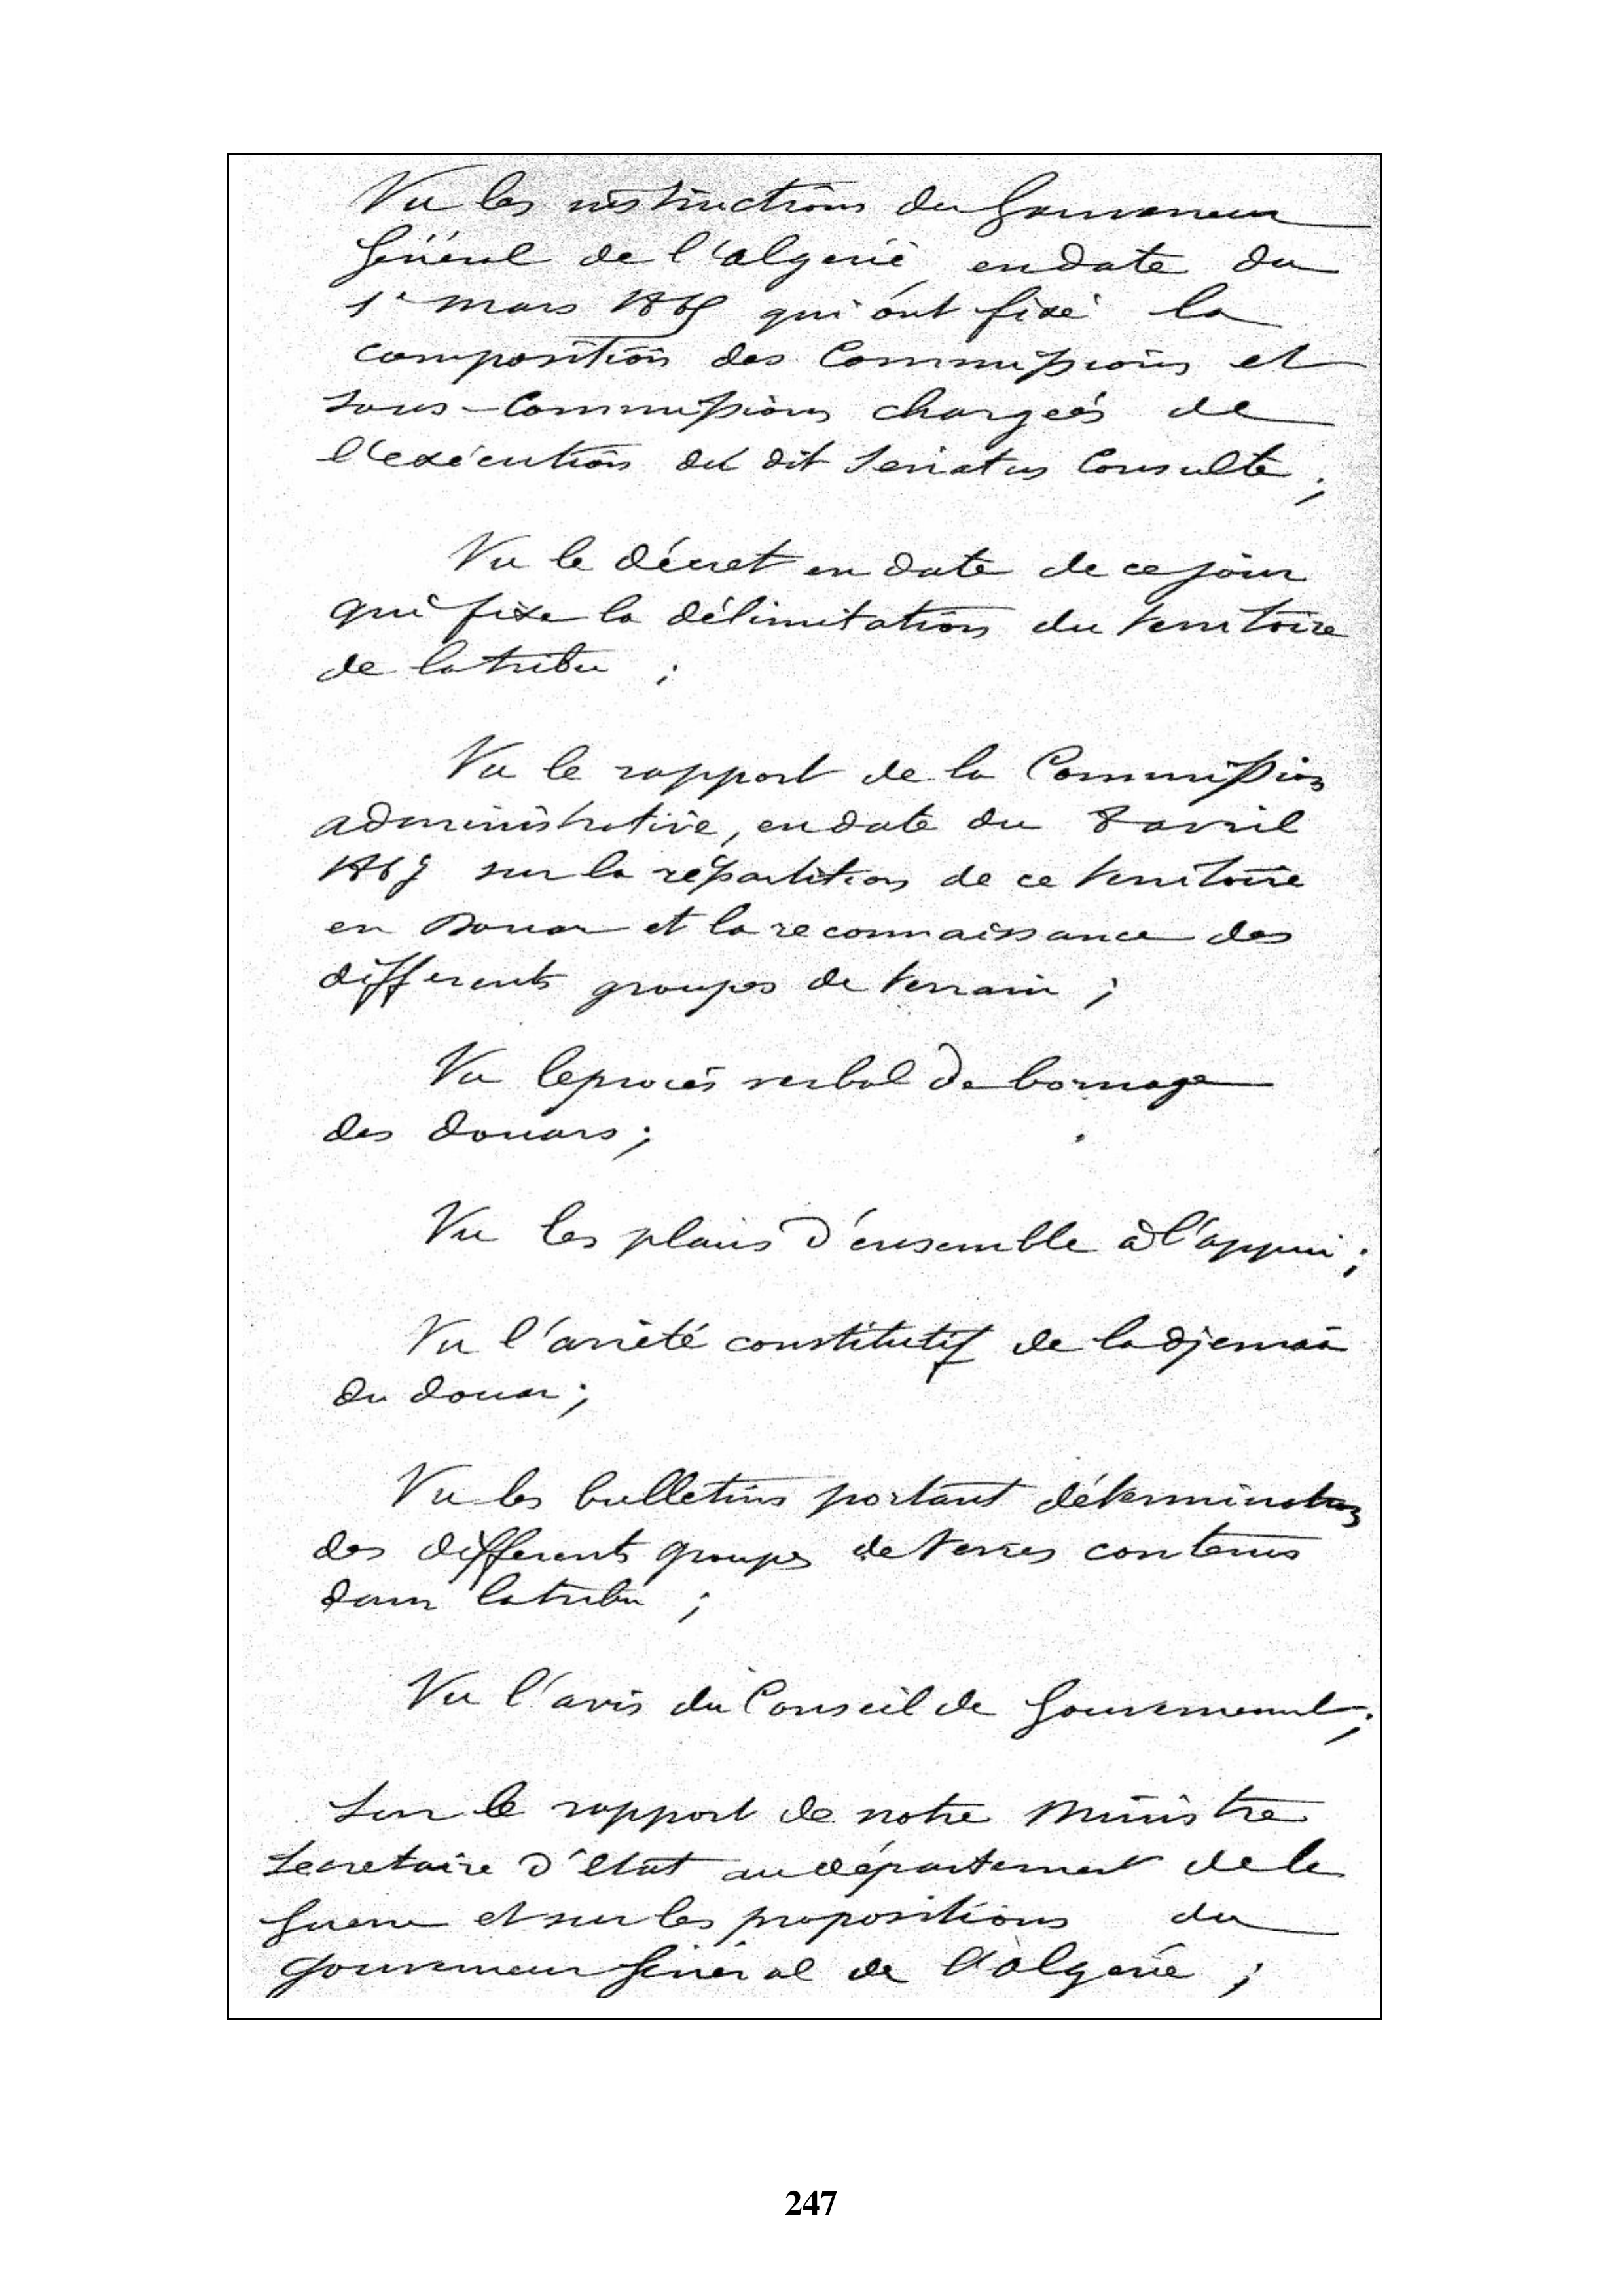 Vu les instructions du Gouverneur
Général de l'algerie en date du
1er mars 1865 qui ont fixé la
composition des Commissions et
sous-Commissions chargées de
l'exécution du dit Senatus Consulte ;
Vu le décret en date de ce jour
qui fixe la délimitation du territoire
de la tribu ;
Vu le rapport de la Commission
administrative, en date du 8 avril
1867 sur la répartition de ce territoire
en Douar et la reconnaissance des
differents groupes de terrain ;
Vu le procès verbal de bornage
des douars ;
Vu les plans d'ensemble à l'appui ;
Vu l'arrêté constitutif de la djemaa
du douar ;
Vu les bulletins portant détermination
des differents groupes de terres contenus
dans la tribu ;
Vu l'avis du Conseil de Gouvernement ;
Sur le rapport de notre Ministre
Secretaire d'Etat au département de la
Guerre et sur les propositions du
Gouverneur Général de l'algérie ;
247